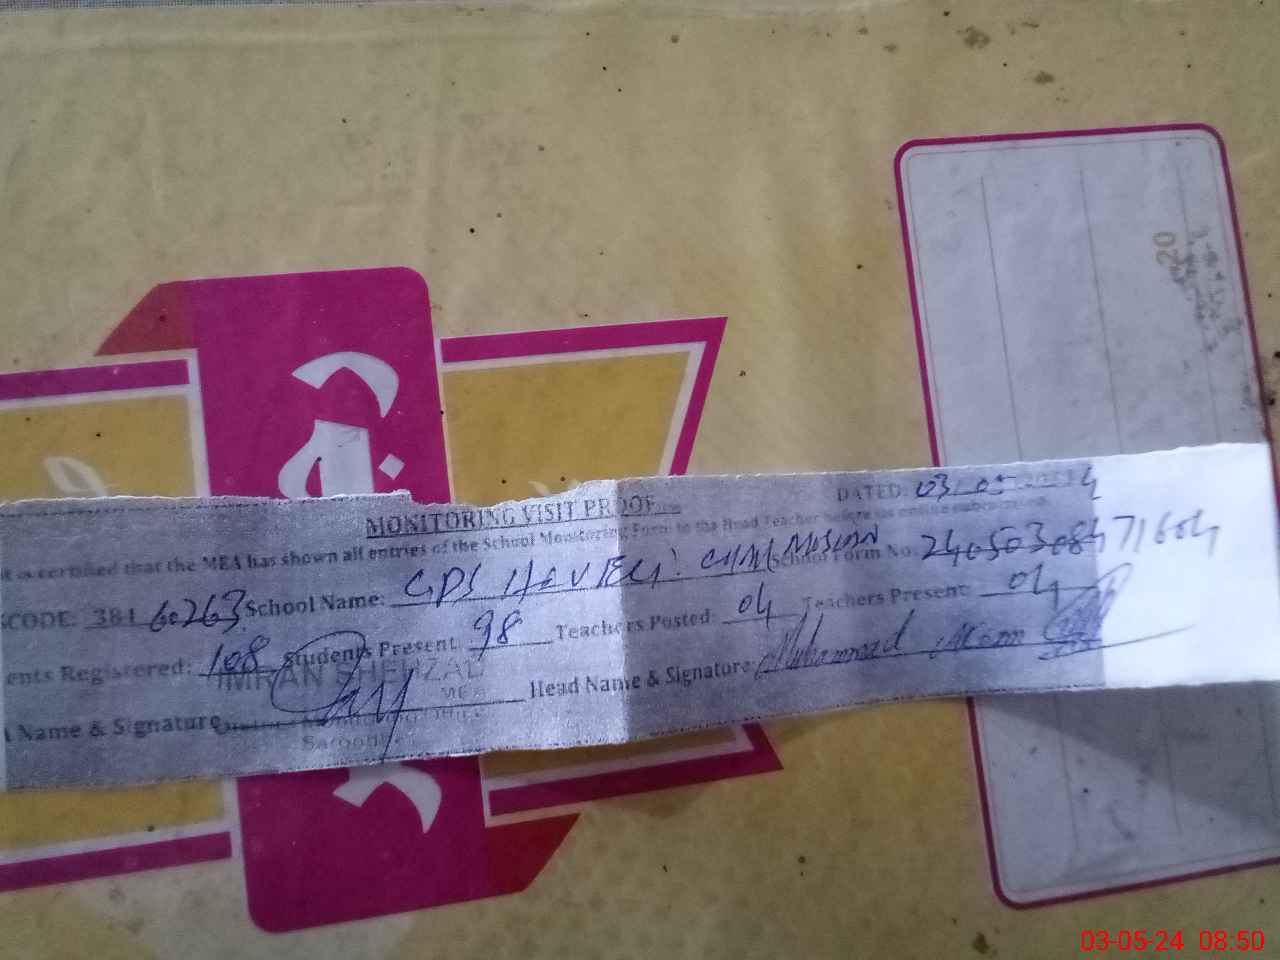 MONITORING VISIT PROOF
DATED: 03 05 2024
it is certified that the MEA has shown all entries of the School Monitoring Form to the Head Teacher before the online submission
SCODE: 384 60263 School Name: GPS School Form No: 24050308471604
ents Registered: 108 Students Present: 98 Teachers Posted: 04 Teachers Present: 04
IMRAN SHEHZAD
MEA
Name & Signature Head Name & Signature: Muhammad
District Monitoring Office
Sargodha
20
03-05-24 08:50